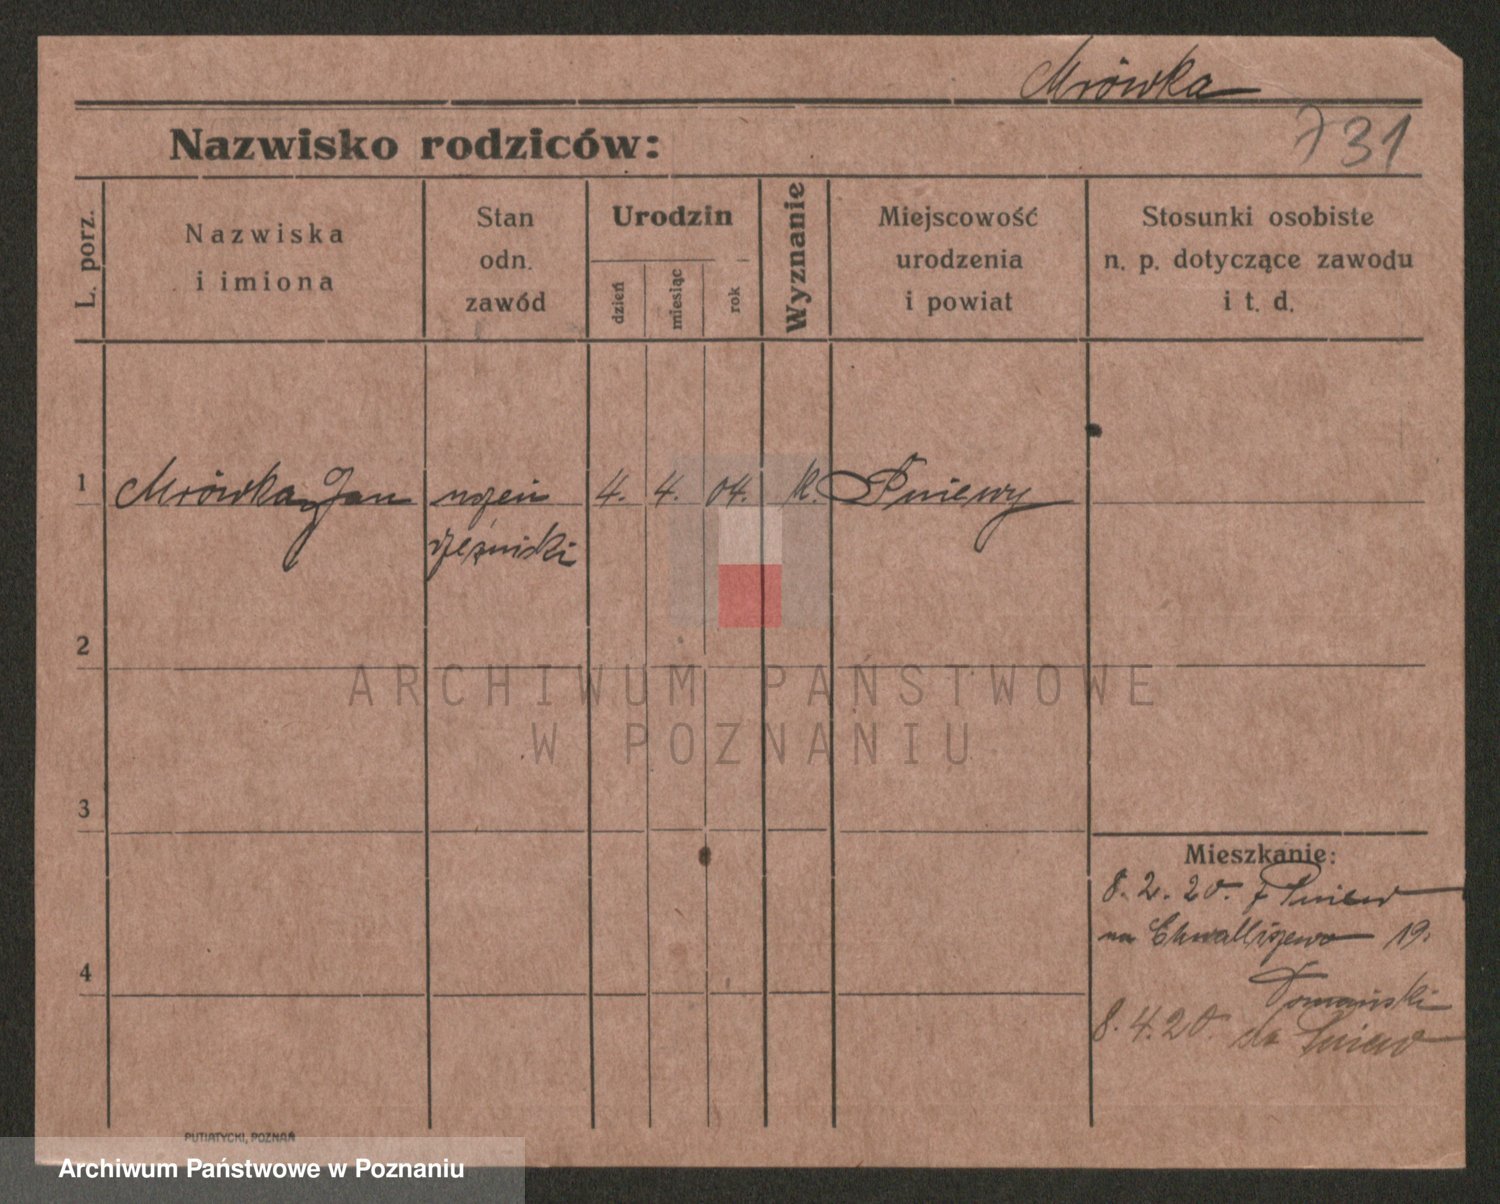 Mrówka
Nazwisko rodziców:
731
L. porz.
Nazwiska
i imiona
Stan
odn.
zawód
Urodzin
dzień
miesiąc
rok
Wyznanie
Miejscowość
urodzenia
i powiat
Stosunki osobiste
n. p. dotyczące zawodu
i t. d.
1
Mrówka Jan
uczeń
rzeźnicki
4.
4.
04.
k.
Pniewy
2
ARCHIWUM PAŃSTWOWE
W POZNANIU
3
Mieszkanie:
8. 2. 20. z Pniew
na Chwaliszewo 19.
4
Domański
8. 4. 20. do Pniew
PUTIATYCKI, POZNAŃ
Archiwum Państwowe w Poznaniu